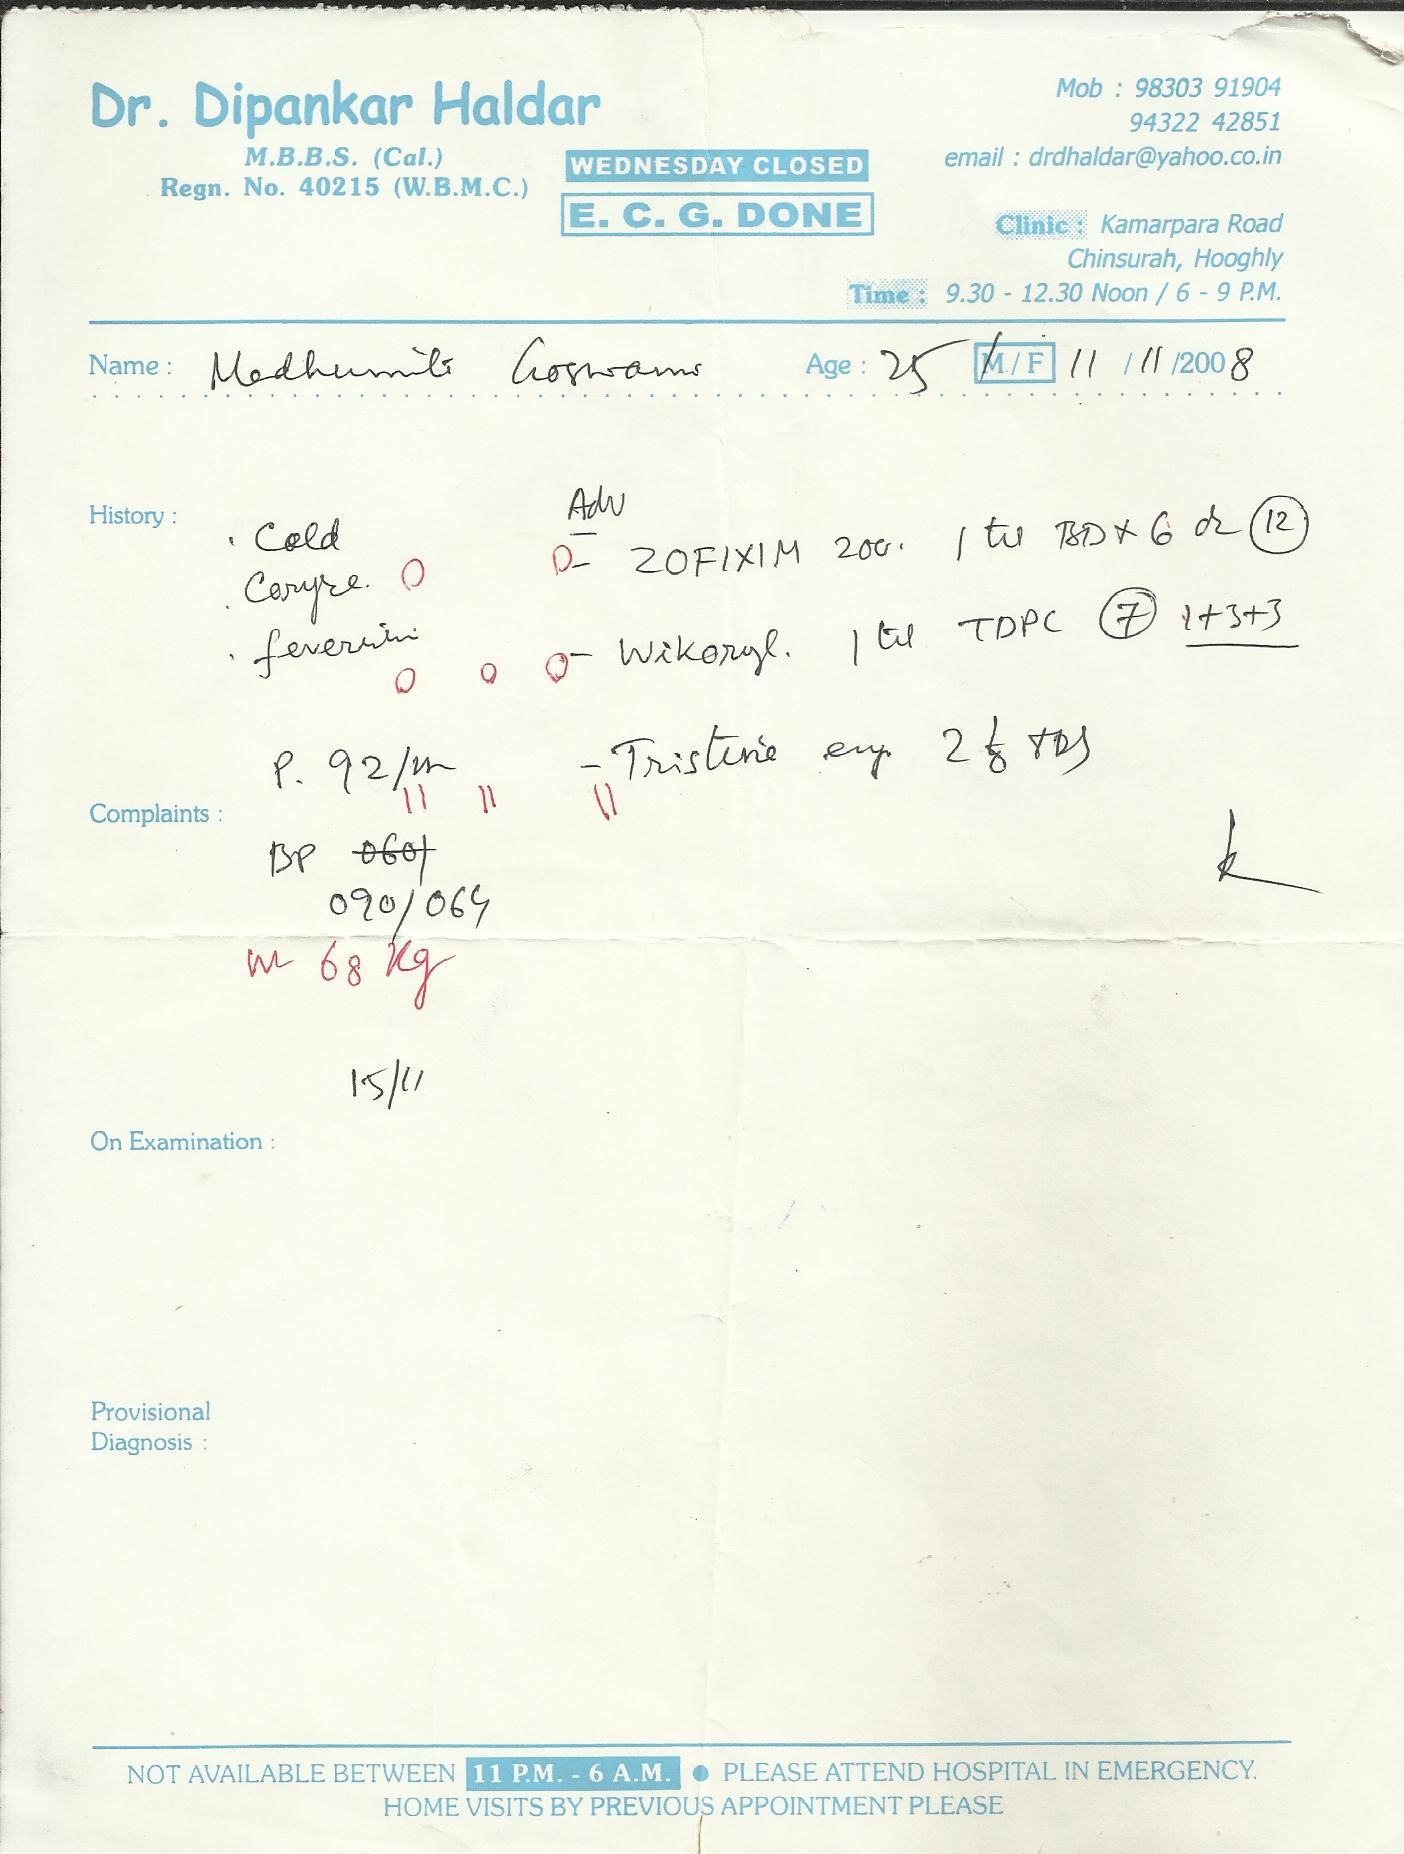 Dr. Dipankar Haldar
M.B.B.S. (Cal.)
Regn. No. 40215 (W.B.M.C.)
WEDNESDAY CLOSED
E. C. G. DONE
Mob : 98303 91904
94322 42851
email : drdhaldar@yahoo.co.in
Clinic : Kamarpara Road
Chinsurah, Hooghly
Time : 9.30 - 12.30 Noon / 6 - 9 P.M.
Name : Madhumita Goswami Age : 25 M / F 11 / 11 /2008
History :
. Cold
. Coryza.
. feverish
Adv
- ZOFIXIM 200. 1 BD x 6 12
- Wikoryl. 1 TDPC 7 1+3+3
- 2 TDS
P. 92/m
Complaints :
BP 060/
090/064
68 Kg
15/11
On Examination :
Provisional
Diagnosis :
NOT AVAILABLE BETWEEN 11 P.M. - 6 A.M. ● PLEASE ATTEND HOSPITAL IN EMERGENCY.
HOME VISITS BY PREVIOUS APPOINTMENT PLEASE